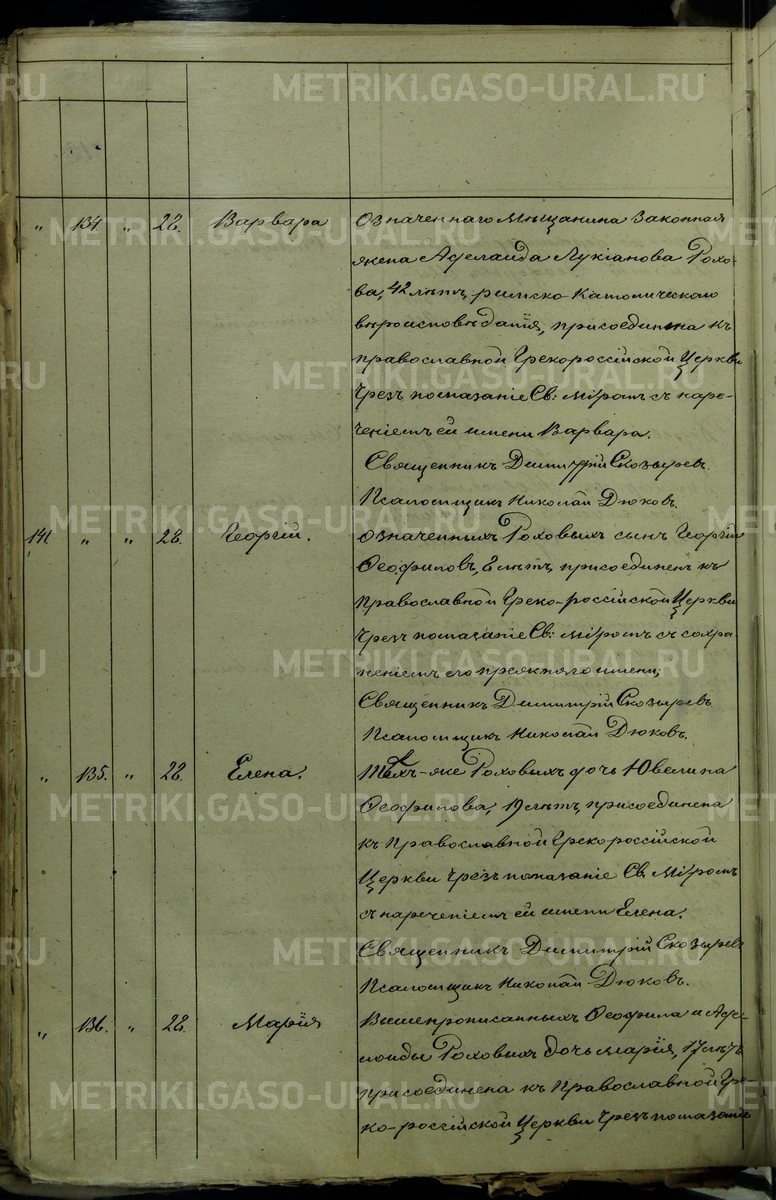 „ 134. „ 28. Варвара Означеннаго Мѣщанина законная
жена Аделаида Лукіанова Рохо-
ва, 42 лѣтъ, римско-Католическаго
вѣроисповѣданія, присоединена къ
православной Грекороссійской Церкви
чрезъ помазаніе Св: мѵромъ съ наре-
ченіемъ ей имени Варвара.
Священникъ Димитрій Скозыревъ.
Псаломщикъ Николай Дюковъ.
141 „ „ 28. Георгій. Означенныхъ Роховыхъ сынъ Георгій
Ѳеофиловъ, 8 лѣтъ, присоединенъ къ
Православной Греко-россійской Церкви
чрезъ помазаніе Св: мѵромъ съ сохра-
неніемъ его прежняго имени;
Священникъ Димитрій Скозыревъ.
Псаломщикъ Николай Дюковъ.
„ 135. „ 28. Елена. Тѣхъ-же Роховыхъ дочь Ювелина
Ѳеофилова, 19 лѣтъ, присоединена
къ Православной Грекороссійской
Церкви чрезъ помазаніе Св. Мѵромъ
съ нареченіемъ ей имени Елена.
Священникъ Димитрій Скозыревъ
Псаломщикъ Николай Дюковъ.
„ 136. „ 28. Марія Вышепрописанныхъ Ѳеофила и Аде-
лаиды Роховыхъ дочь Марія, 17 лѣтъ
присоединена къ Православной Гре-
ко-россійской Церкви чрезъ помазаніе
METRIKI.GASO-URAL.RU